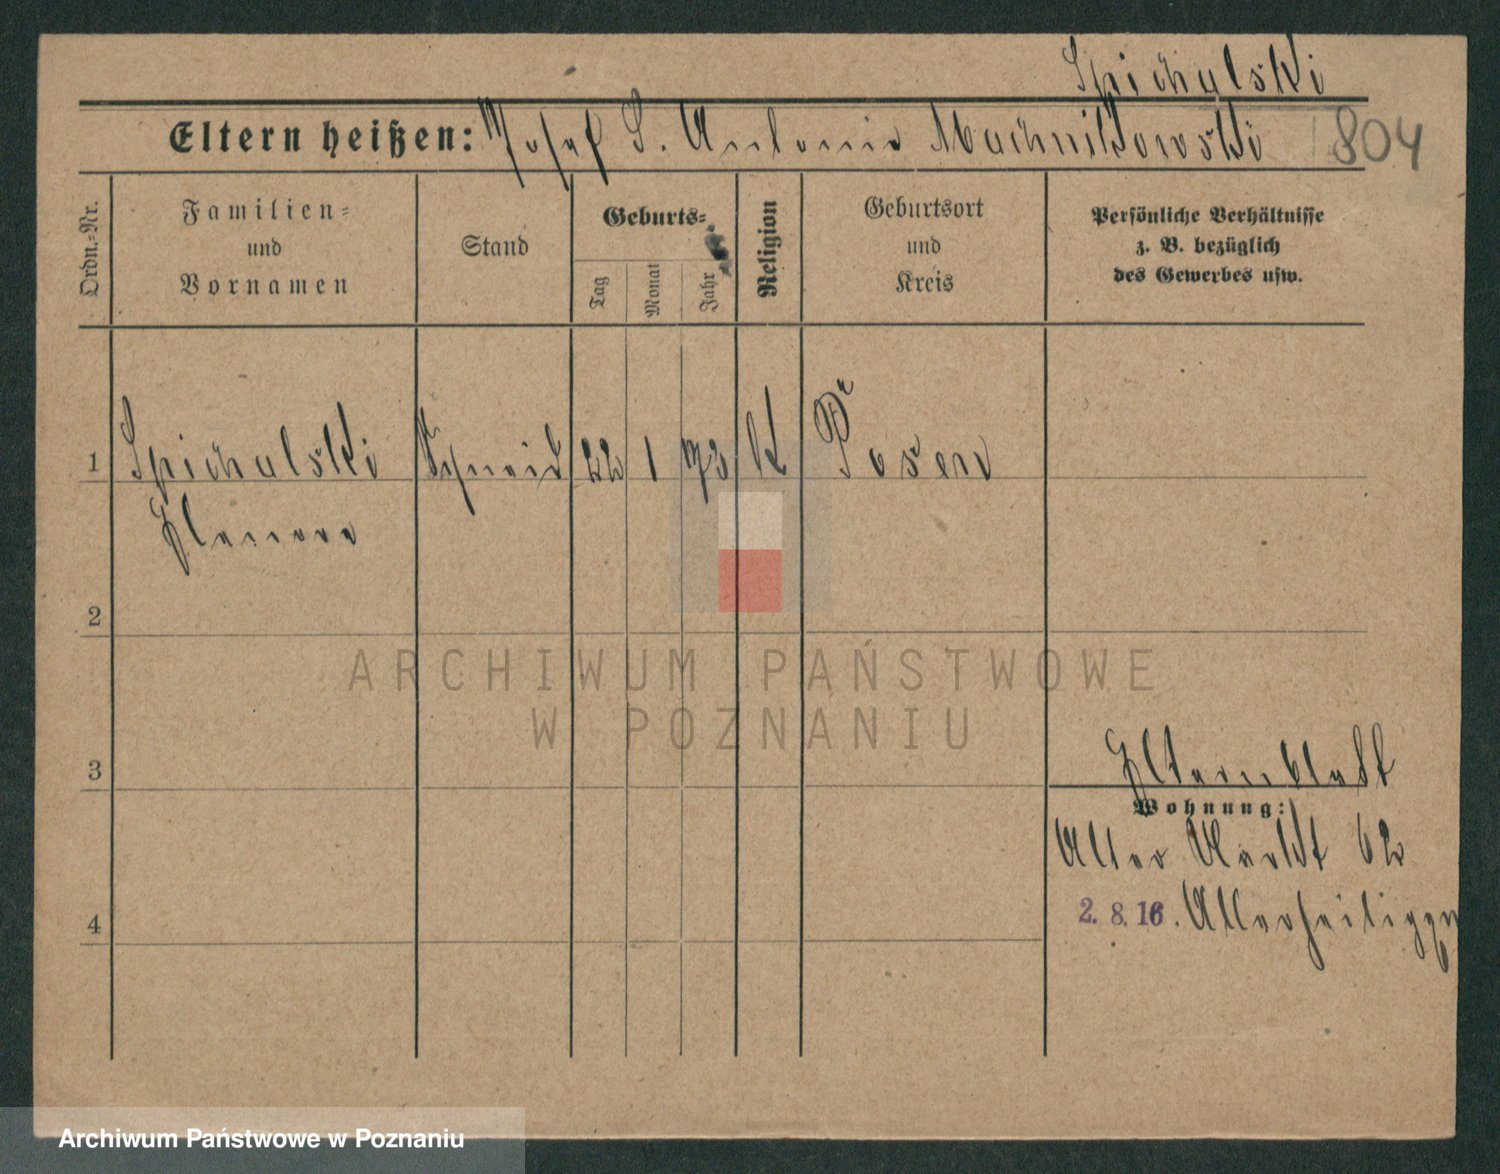 Spichalski
Eltern heißen: Josef S. Antonie Machnikowski 804
Ordn.-Nr.
Familien-
und
Vornamen
Stand
Geburts-
Tag
Monat
Jahr
Religion
Geburtsort
und
Kreis
Persönliche Verhältnisse
z. B. bezüglich
des Gewerbes usw.
1 Spichalski Schneid 22 1 73 K Posen
Eleonore
2
ARCHIWUM PAŃSTWOWE
W POZNANIU
3
Elternblatt
Wohnung:
Alter Markt 62
2. 8. 16. Allerheiligen
4
Archiwum Państwowe w Poznaniu